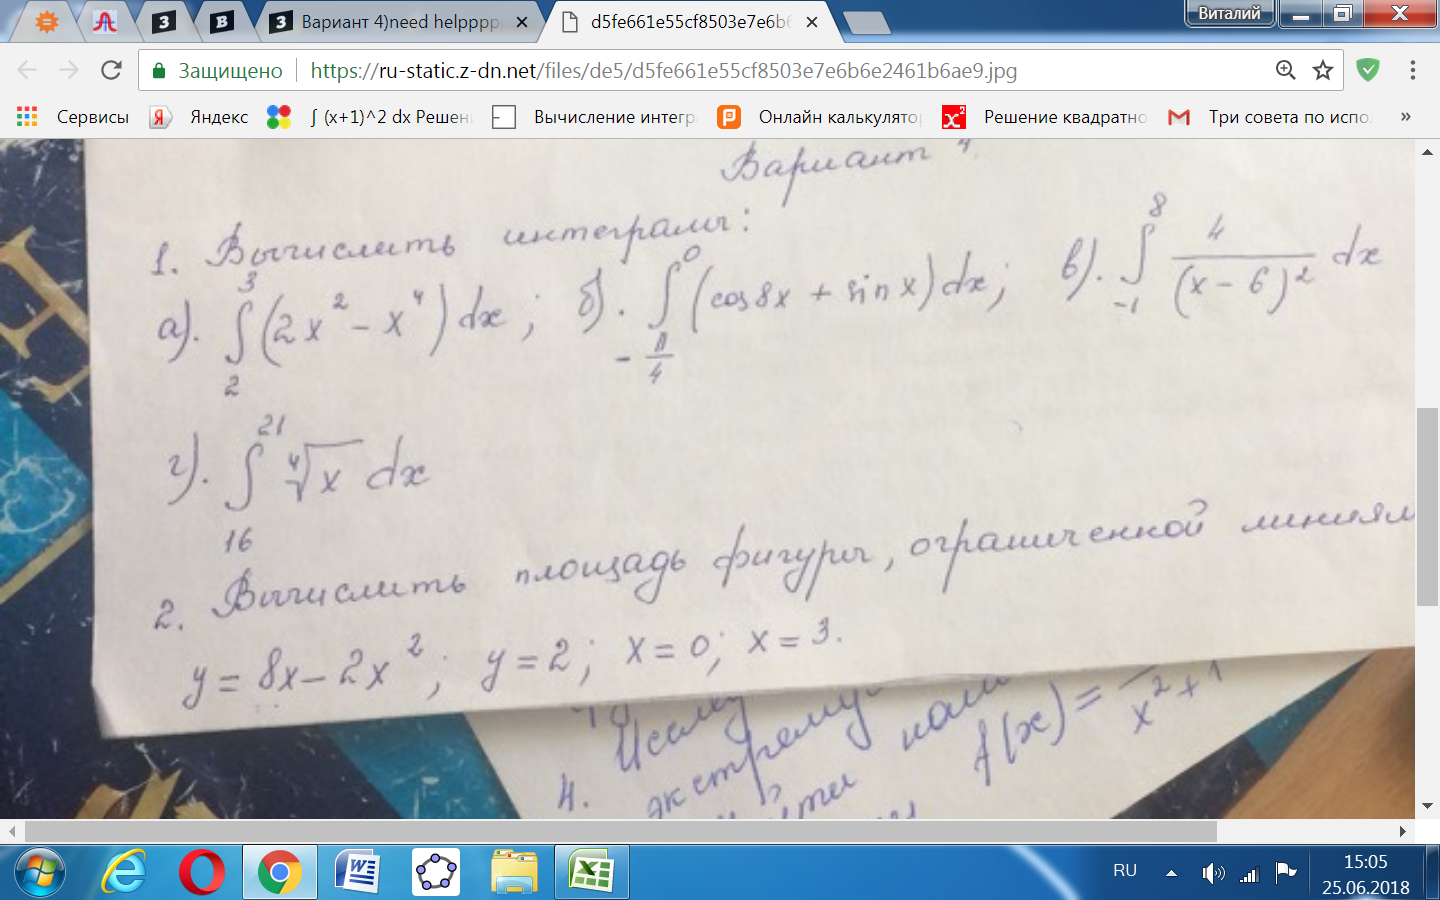 Виталий
Вариант 4)need helppppp
d5fe661e55cf8503e7e6b6
Защищено https://ru-static.z-dn.net/files/de5/d5fe661e55cf8503e7e6b6e2461b6ae9.jpg
Сервисы Яндекс ∫ (x+1)^2 dx Решен Вычисление интегр Онлайн калькулято Решение квадратно Три совета по испо »
Вариант 4.
1. Вычислить интегралы:
а). ∫₂³ (2x² − x⁴) dx ; б). ∫_{-π/4}^{0} (cos8x + sin x) dx; в). ∫_{-1}^{8} 4/(x − 6)² dx
г). ∫_{16}^{21} ⁴√x dx
2. Вычислить площадь фигуры, ограниченной линиям
y = 8x − 2x² ; y = 2 ; x = 0; x = 3.
4.
f(x) = x² + 1
RU 15:05
25.06.2018